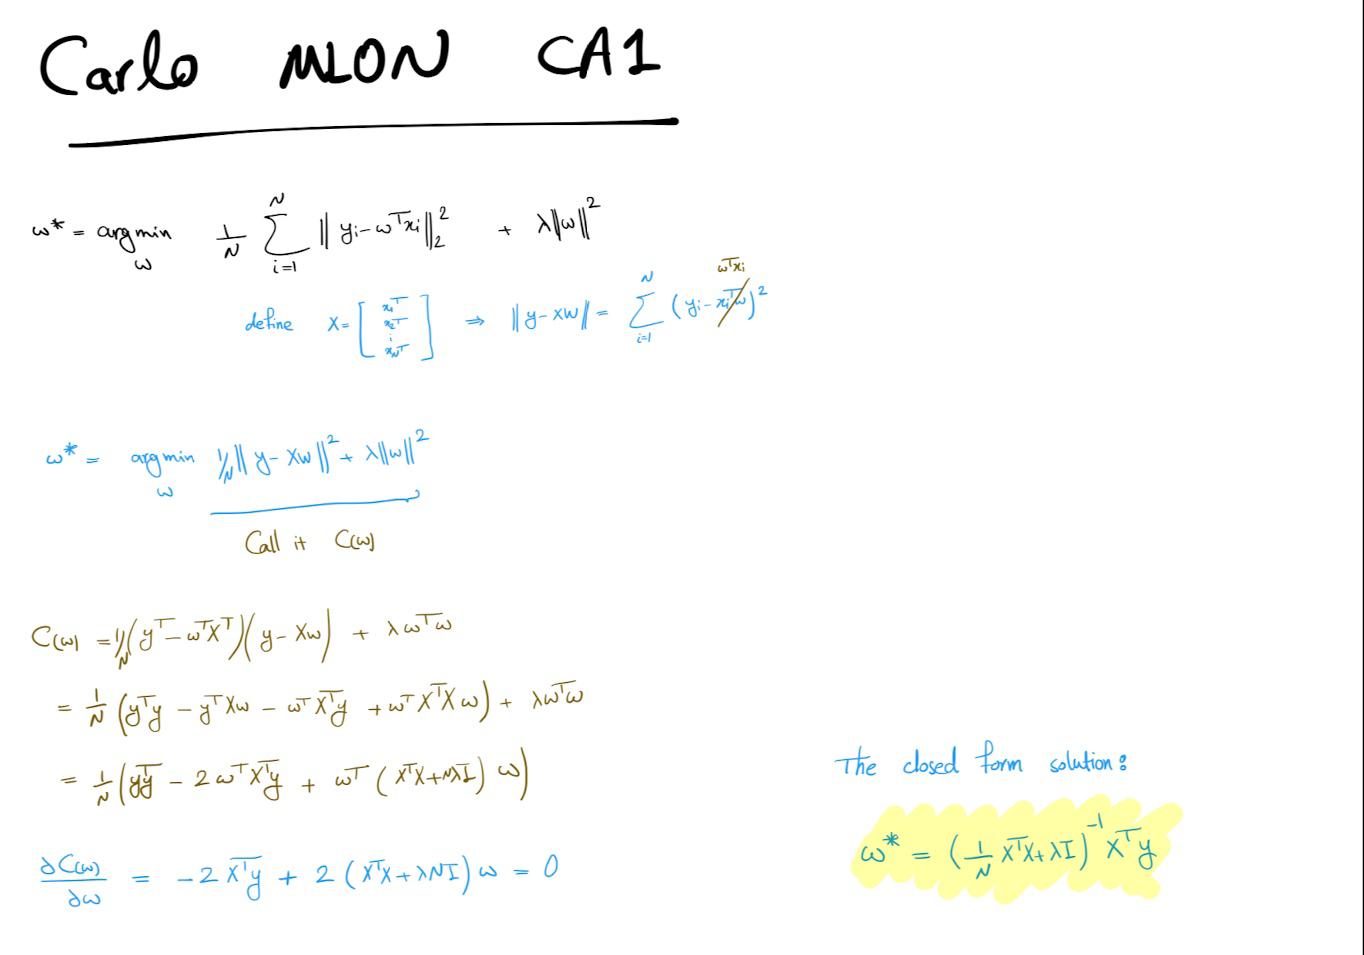 Carlo MLON CA1
ω* = argmin_ω 1/N Σ_{i=1}^{N} ‖ yᵢ - ωᵀxᵢ ‖₂² + λ‖ω‖²
ωᵀxᵢ
define X = [ x₁ᵀ x₂ᵀ ⋮ x_Nᵀ ] ⇒ ‖ y - Xw ‖ = Σ_{i=1}^{N} ( yᵢ - xᵢᵀω )²
ω* = argmin_ω 1/N ‖ y - Xw ‖² + λ‖ω‖²
Call it C(ω)
C(ω) = 1/N ( yᵀ - ωᵀXᵀ )( y - Xω ) + λ ωᵀω
= 1/N ( yᵀy - yᵀXω - ωᵀXᵀy + ωᵀXᵀXω ) + λωᵀω
= 1/N ( yyᵀ - 2ωᵀXᵀy + ωᵀ ( XᵀX + NλI ) ω )
∂C(ω)/∂ω = -2Xᵀy + 2 ( XᵀX + λNI ) ω = 0
The closed form solution:
ω* = ( 1/N XᵀX + λI )⁻¹ Xᵀy